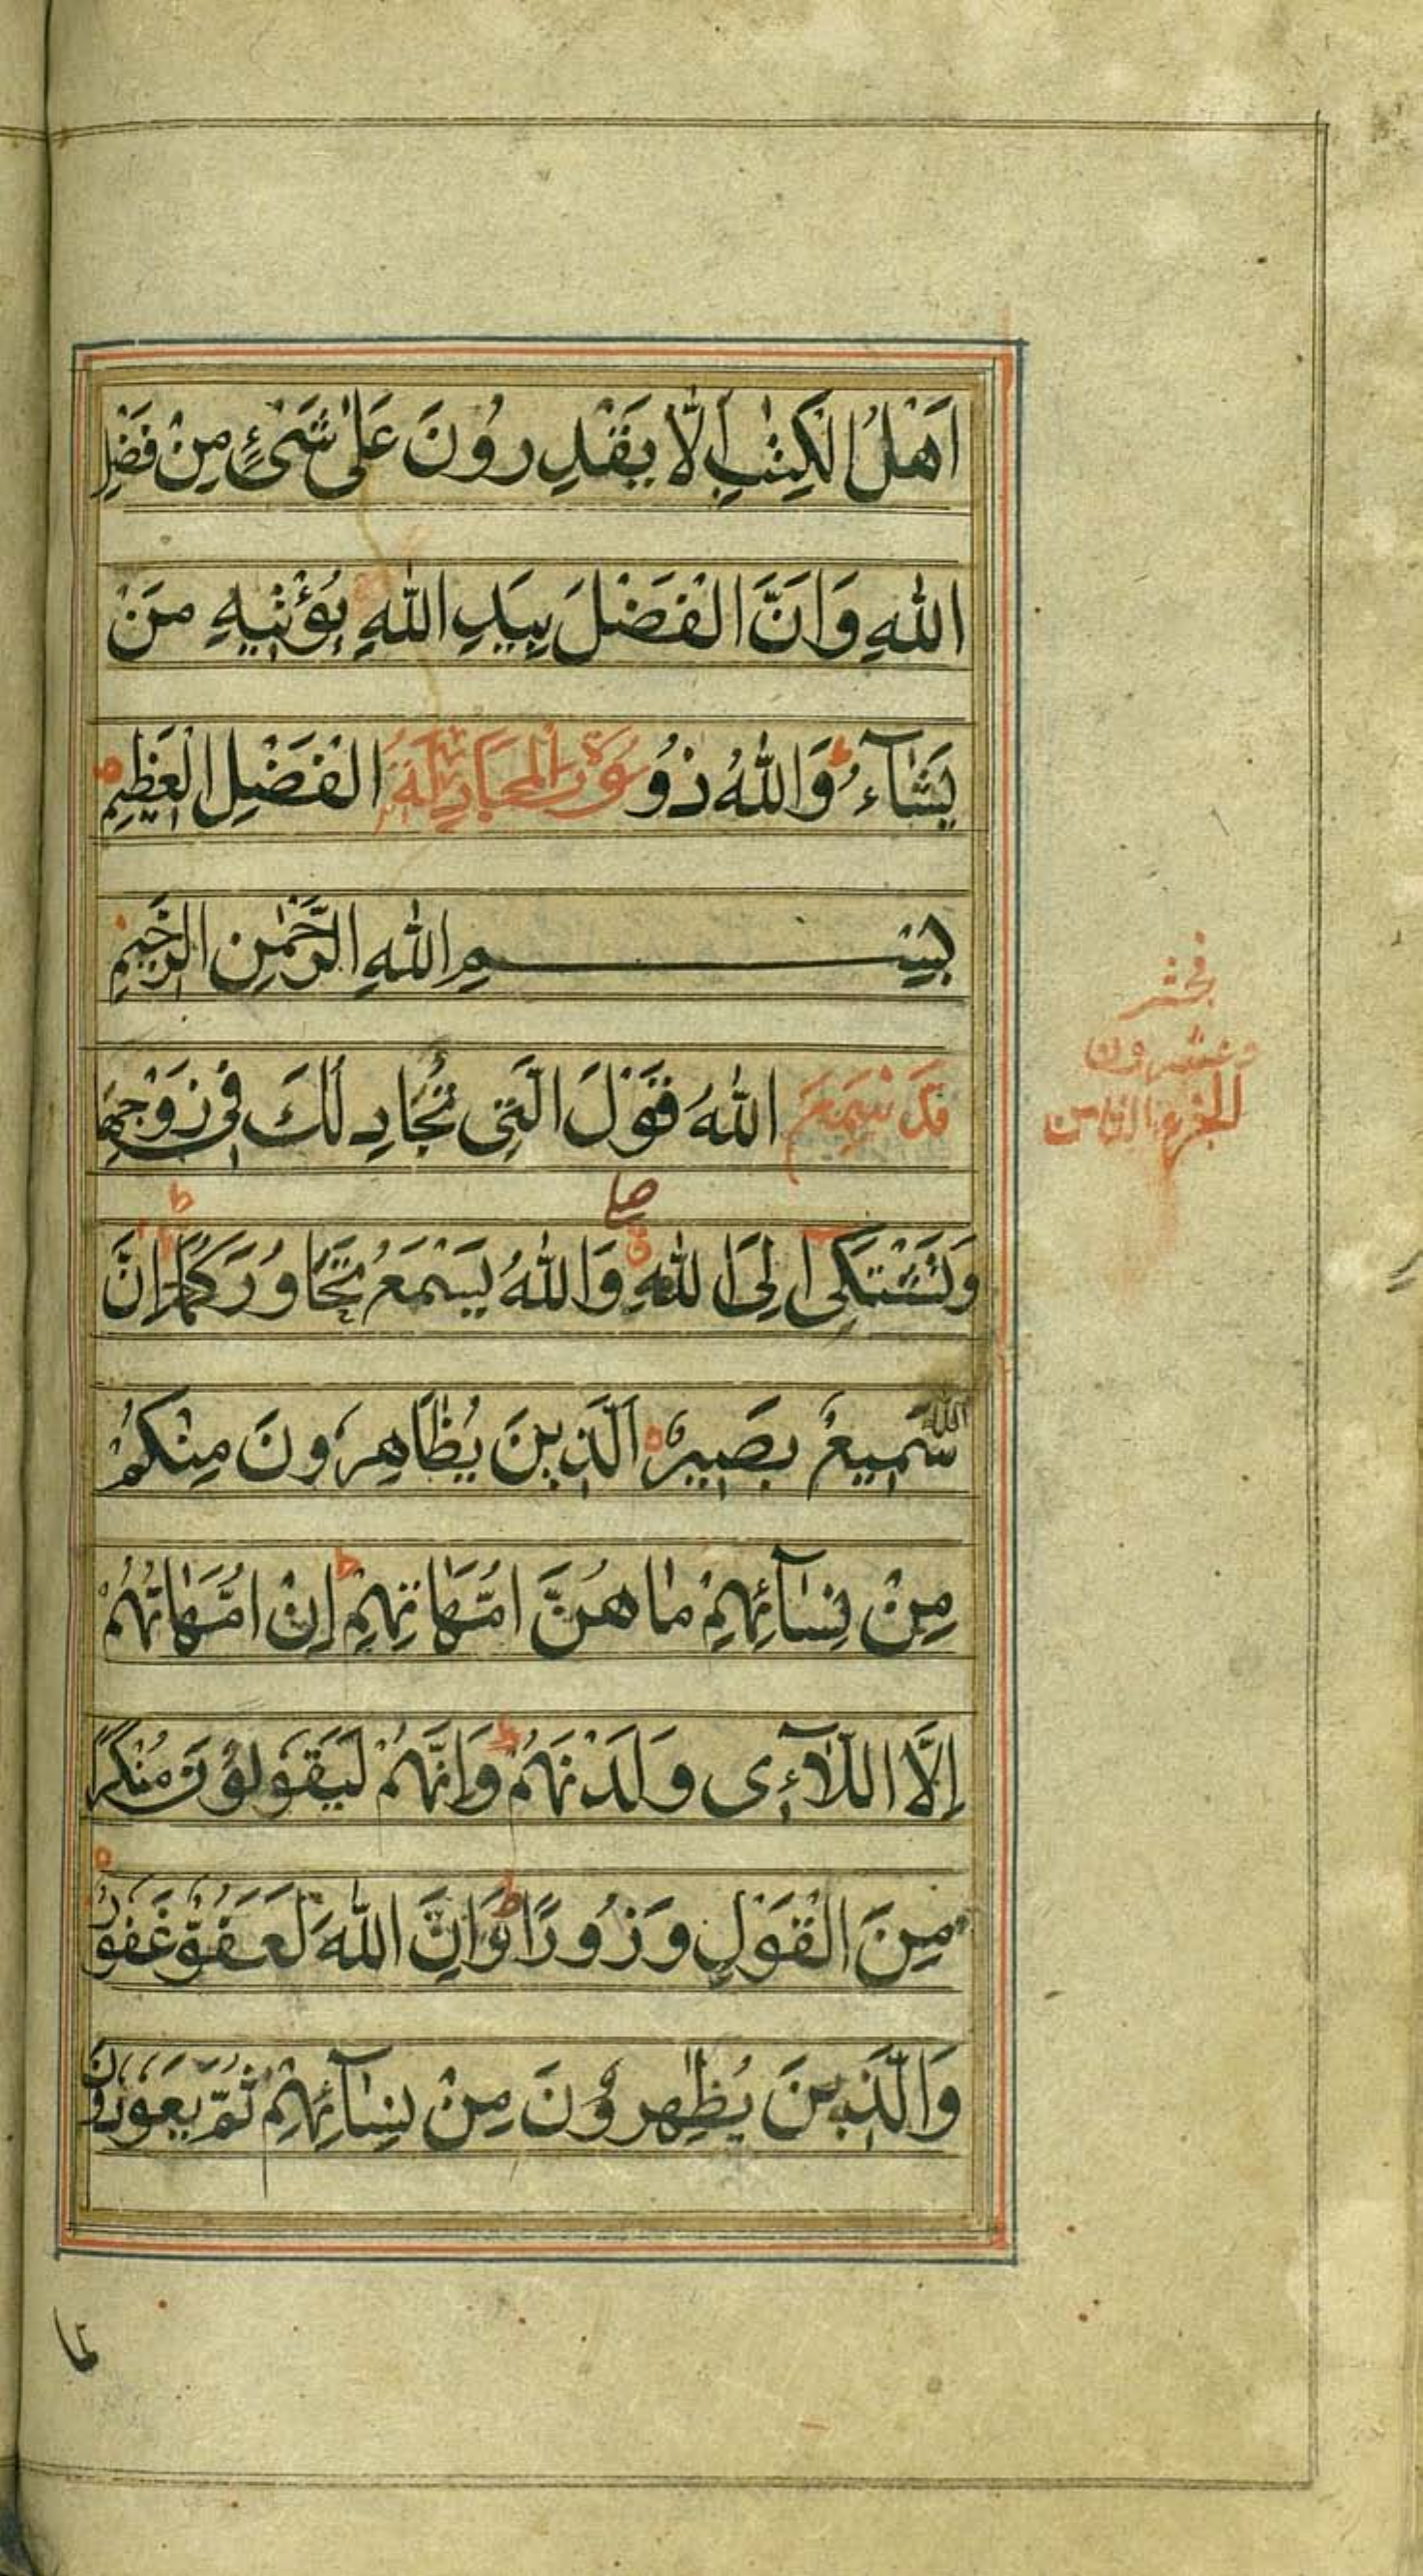 اَهْلُ الْكِتٰبِ اَلَّا يَقْدِرُوْنَ عَلٰى شَىْءٍ مِنْ فَضْلِ
اللّٰهِ وَاَنَّ الْفَضْلَ بِيَدِ اللّٰهِ يُؤْتِيْهِ مَنْ
يَشَآءُ ط وَاللّٰهُ ذُو سُوْرَة الْمُجَادِلَة الْفَضْلِ الْعَظِيْمِ
بِسْمِ اللّٰهِ الرَّحْمٰنِ الرَّحِيْمِ
قَدْ سَمِعَ اللّٰهُ قَوْلَ الَّتِى تُجَادِلُكَ فِى زَوْجِهَا
وَتَشْتَكِى اِلَى اللّٰهِ وَاللّٰهُ يَسْمَعُ تَحَاوُرَكُمَا ط اِنَّ
اللّٰهَ سَمِيعٌ بَصِيْرٌ اَلَّذِيْنَ يُظَاهِرُونَ مِنْكُمْ
مِنْ نِسَآئِهِمْ مَا هُنَّ اُمَّهَاتِهِمْ ط اِنْ اُمَّهَاتُهُمْ
اِلَّا اللَّآءِى وَلَدْنَهُمْ ط وَاِنَّهُمْ لَيَقُولُوْنَ مُنْكَرًا
مِنَ الْقَوْلِ وَزُورًا ط وَاِنَّ اللّٰهَ لَعَفُوٌّ غَفُورٌ
وَالَّذِيْنَ يُظٰهِرُوْنَ مِنْ نِسَآئِهِمْ ثُمَّ يَعُودُوْنَ
لما
وعشرون
الجزء الثامن